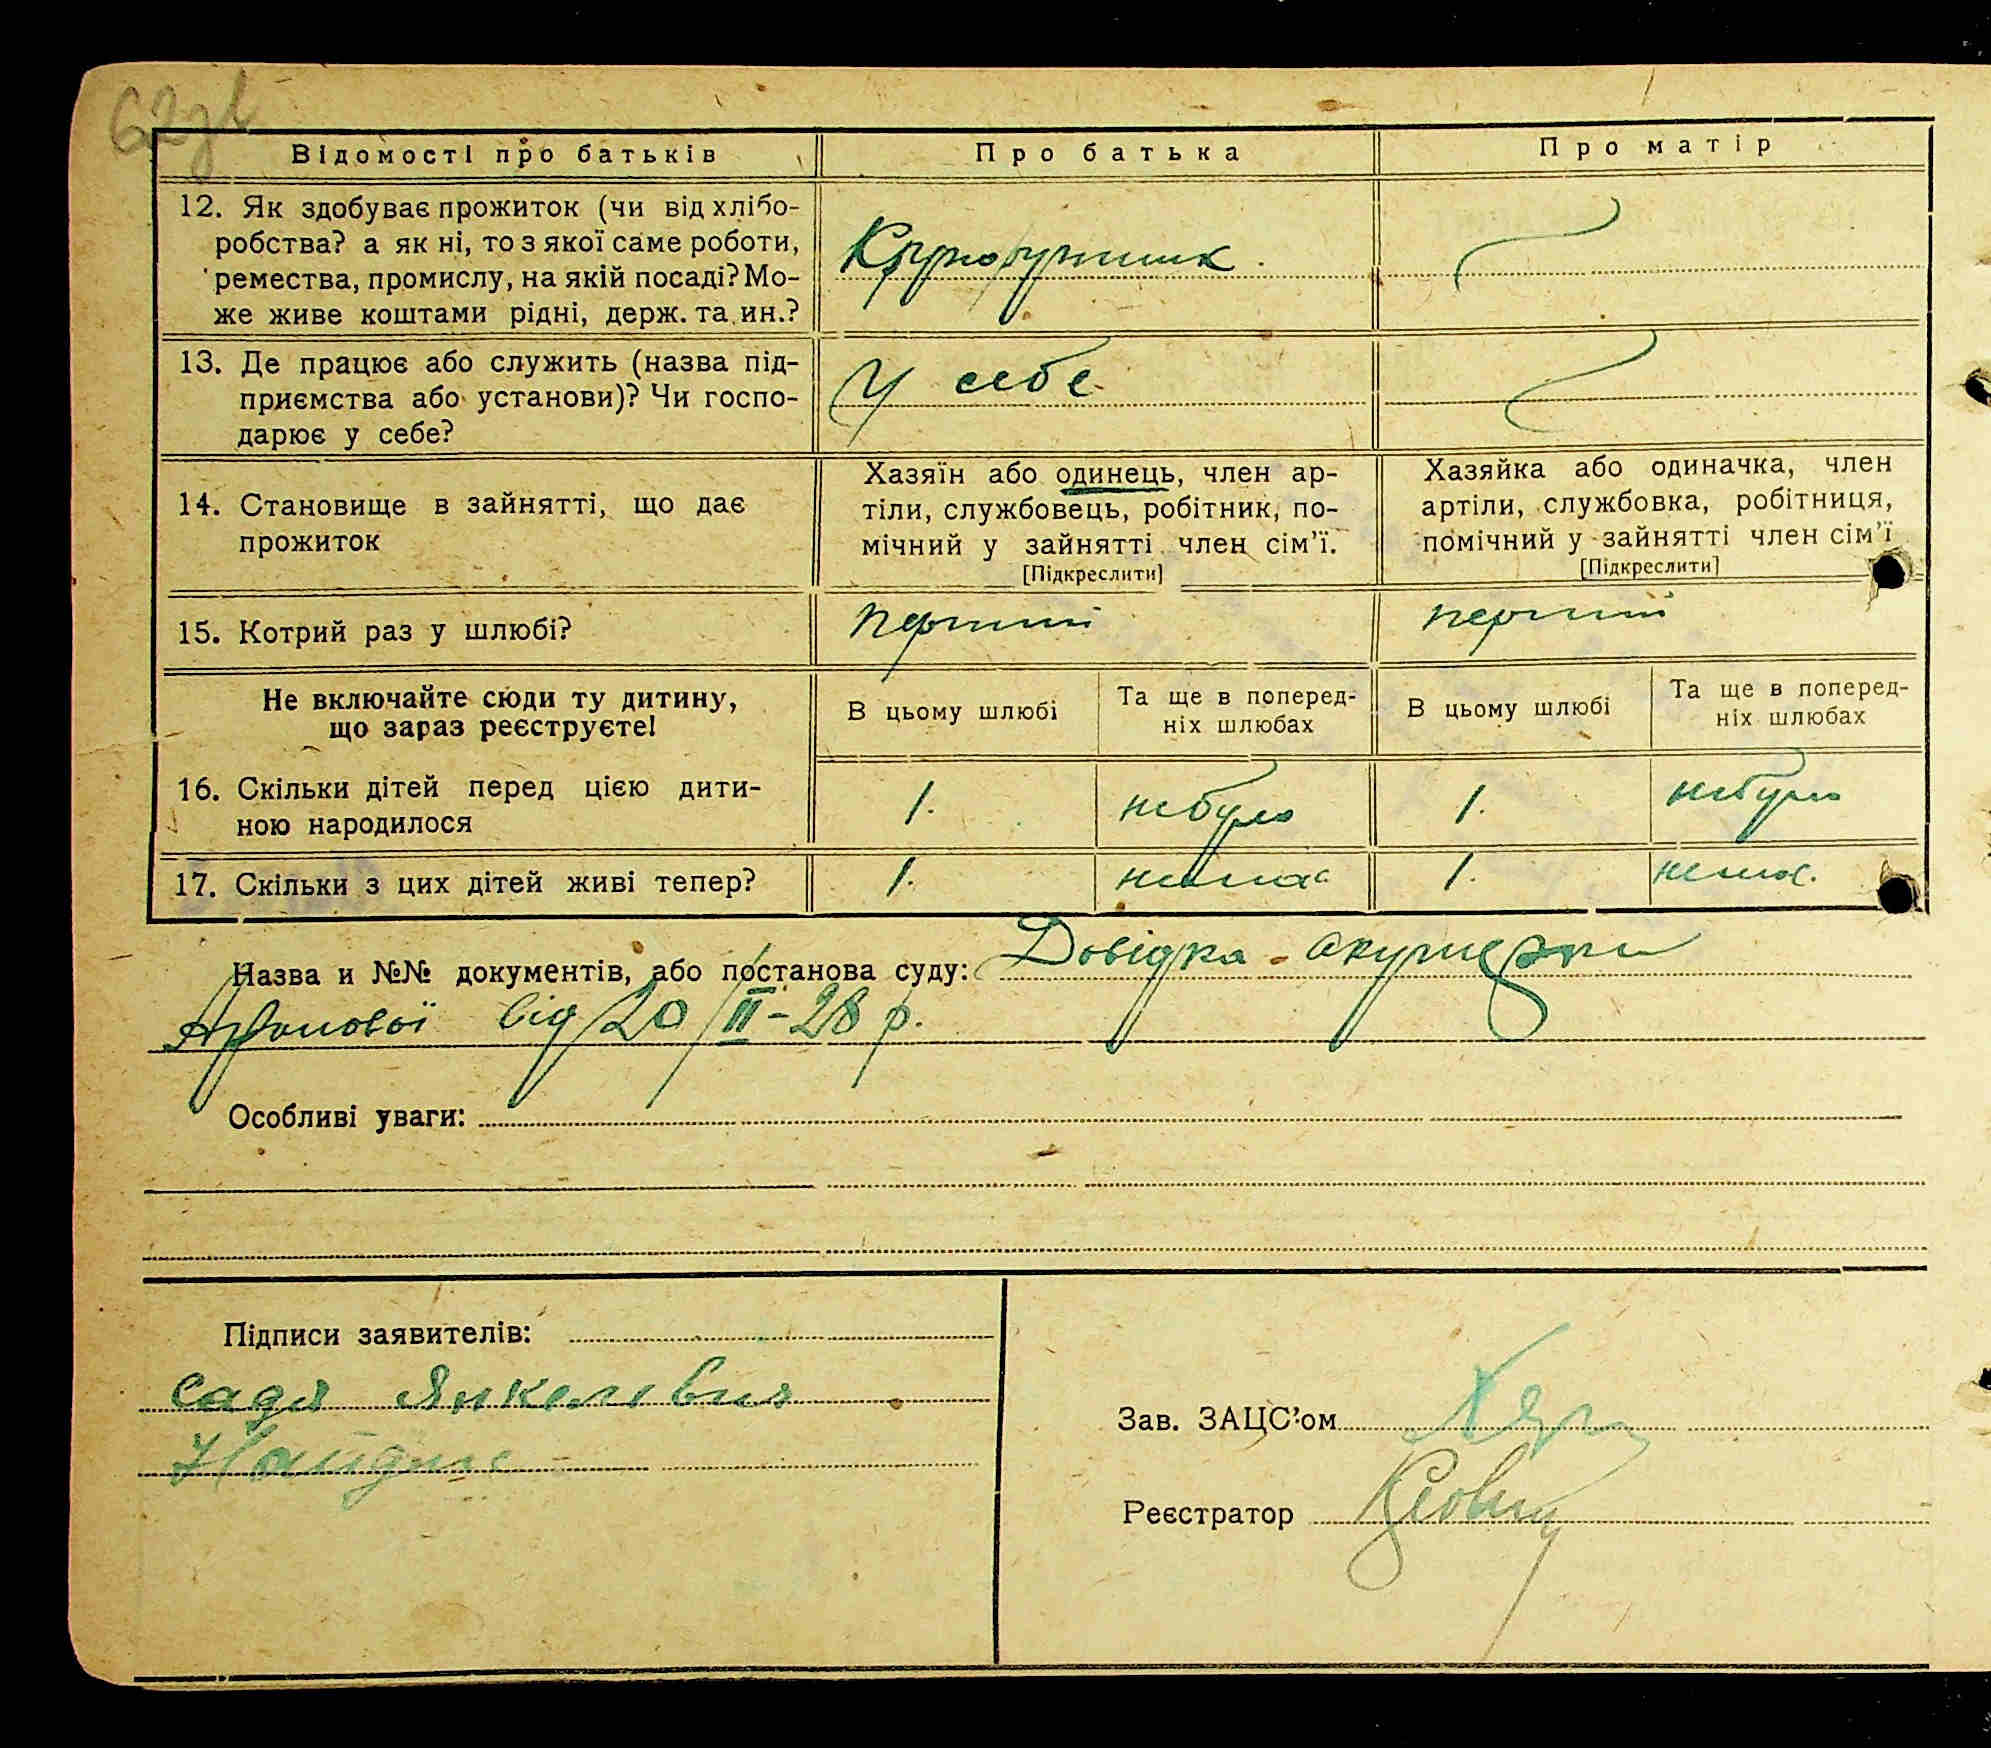 Відомості про батьків
Про батька
Про матір
12. Як здобуває прожиток (чи від хлібо-
робства? а як ні, то з якої саме роботи,
ремества, промислу, на якій посаді? Мо-
же живе коштами рідні, держ. та ин.?
13. Де працює або служить (назва під-
приємства або установи)? Чи госпо-
дарює у себе?
У себе
14. Становище в зайнятті, що дає
прожиток
Хазяїн або одинець, член ар-
тіли, службовець, робітник, по-
мічний у зайнятті член сім’ї.
[Підкреслити]
Хазяйка або одиначка, член
артіли, службовка, робітниця,
помічний у зайнятті член сім’ї
[Підкреслити]
15. Котрий раз у шлюбі?
перший
перший
Не включайте сюди ту дитину,
що зараз реєструєте!
В цьому шлюбі
Та ще в поперед-
ніх шлюбах
В цьому шлюбі
Та ще в поперед-
ніх шлюбах
16. Скільки дітей перед цією дити-
ною народилося
1.
небуло
1.
небуло
17. Скільки з цих дітей живі тепер?
1.
немає
1.
немає.
Назва и №№ документів, або постанова суду: Довідка - акушерки
від 20/II-28 р.
Особливі уваги:
Підписи заявителів:
Зав. ЗАЦС’ом
Реєстратор